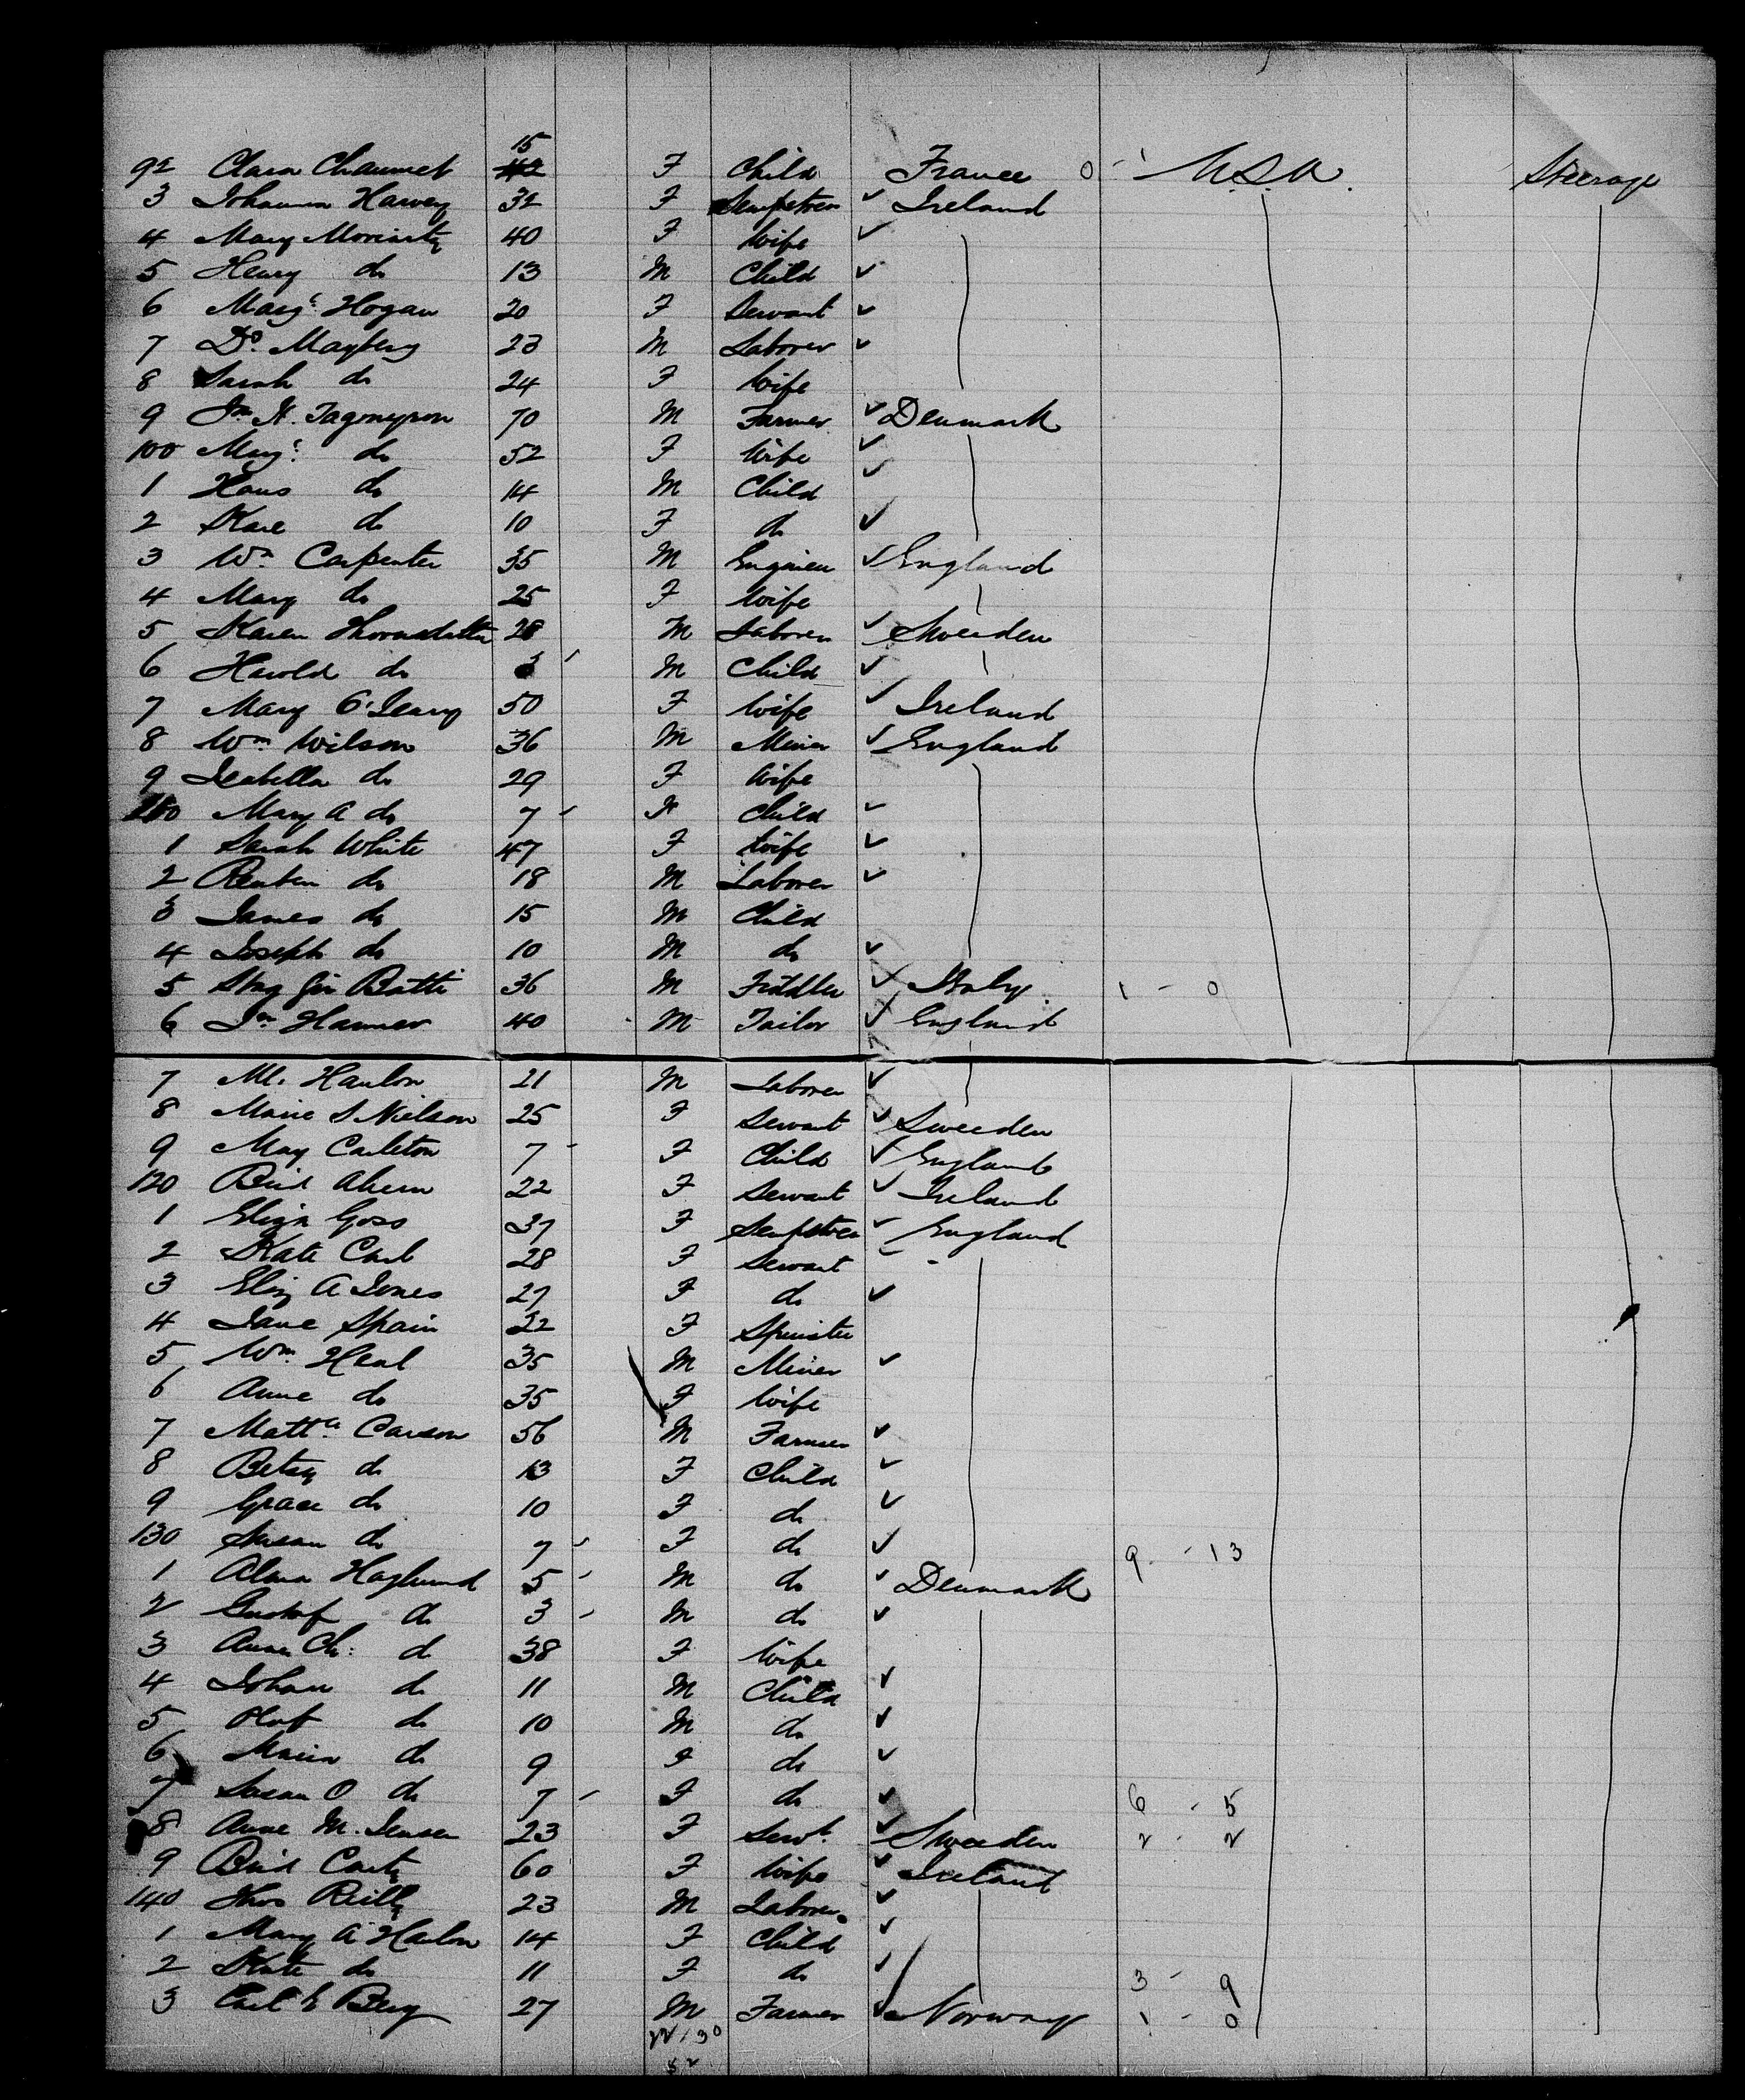 15
92 Clara Chaumet 42 F Child France 0 - 1 U.S.A. Steerage
3 Johanna Harvey 32 F Sempstress ✓ Ireland
4 Mary Moriarty 40 F Wife ✓
5 Henry do 13 M Child ✓
6 Margt. Hogan 20 F Servant ✓
7 Do. Mayberry 23 M Laborer ✓
8 Sarah do 24 F Wife
9 Jn N. 70 M Farmer ✓ Denmark
100 Margt. do 52 F Wife ✓
1 Hans do 14 M Child ✓
2 Kare do 10 F do ✓
3 Wm. Carpenter 35 M Engineer ✓ England
4 Mary do 25 F Wife
5 Karen 28 M Laborer ✓ Sweeden
6 Harold do 3 M Child ✓
7 Mary O'Leary 50 F Wife ✓ Ireland
8 Wm. Wilson 36 M Miner ✓ England
9 Isabella do 29 F Wife
Mary A do 7 F Child ✓
1 Sarah White 47 F Wife ✓
2 Reuben do 18 M Laborer ✓
3 James do 15 M Child
4 Joseph do 10 M do ✓
5 Batti 36 M Fiddler ✓ Italy 1 - 0
6 Jn Hanner 40 M Tailor ✓ England
7 M. Hanlon 21 M Laborer ✓
8 Marie S Nielson 25 F Servant ✓ Sweeden
9 May Carleton 7 F Child ✓ England
120 Brid Ahern 22 F Servant ✓ Ireland
1 Eliza Goss 37 F Sempstress ✓ England
2 Kate Carl 28 F Servant ✓
3 Eliz A Jones 27 F do ✓
4 Jane Spain 22 F Spinster
5 Wm. Heal 35 M Miner ✓
6 Anne do 35 F Wife
7 Matt. Carson 56 M Farmer ✓
8 Betsy do 13 F Child ✓
9 Grace do 10 F do ✓
130 Susan do 7 F do ✓ 9 - 13
1 Alma Haglund 5 M do ✓ Denmark
2 Gustaf do 3 M do ✓
3 Anna Ch: do 38 F Wife
4 Johan do 11 M Child ✓
5 Olof do 10 M do ✓
6 Maria do 9 F do ✓
7 Susan O do 7 F do ✓ 6 - 5
8 Anne M. Jensen 23 F Servt. ✓ Sweeden 2 - 2
9 Brid Carty 60 F Wife ✓ Ireland
140 Thos Reilly 23 M Laborer ✓
1 Mary A Harlon 14 F Child ✓
2 Kate do 11 F do ✓ 3 - 9
3 Carl E Berg 27 M Farmer ✓ Norway 1 - 0
22/30
52